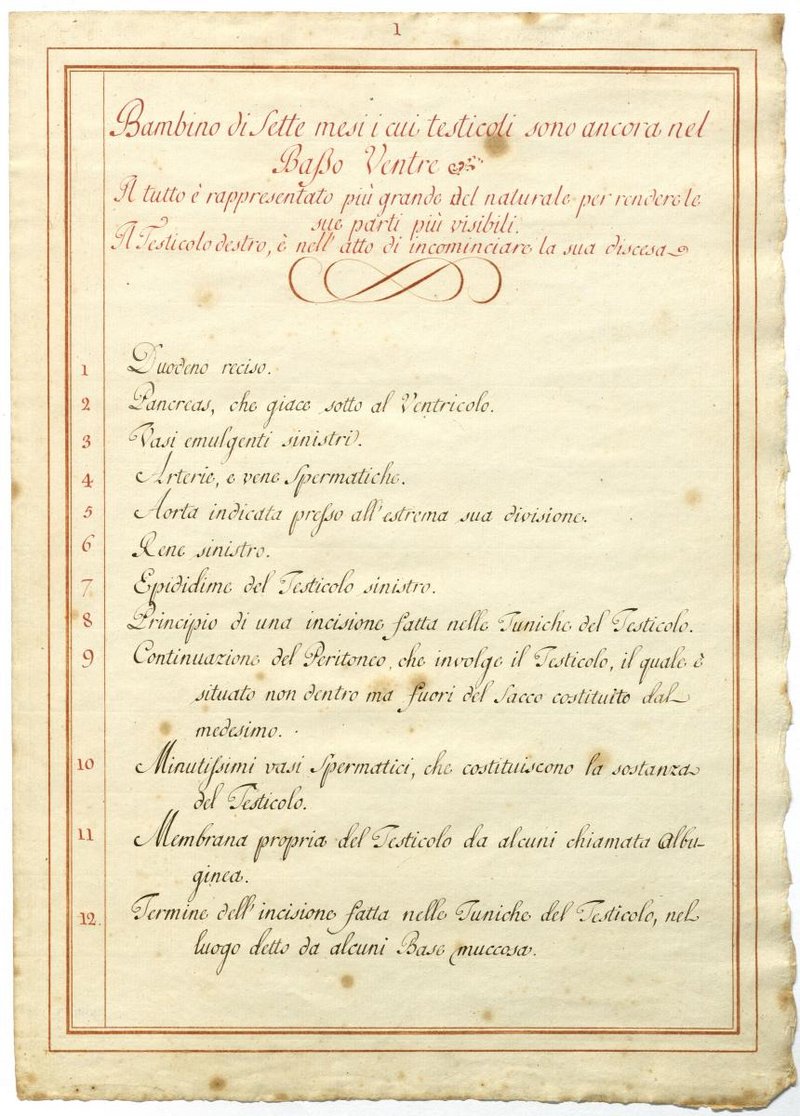 1
Bambino di Sette mesi i cui testicoli sono ancora nel
Baſso Ventre
Il tutto è rappresentato più grande del naturale per rendere le
sue parti più visibili.
Il Testicolo destro, è nell' atto di incominciare la sua discesa
1 Duodeno reciso.
2 Pancreas, che giace sotto al Ventricolo.
3 Vasi emulgenti sinistri.
4 Arterie, e vene Spermatiche.
5 Aorta indicata preſso all'estrema sua divisione.
6 Rene sinistro.
7 Epididime del Testicolo sinistro.
8 Principio di una incisione fatta nelle Tuniche del Testicolo.
9 Continuazione del Peritoneo, che involge il Testicolo, il quale è
situato non dentro ma fuori del Sacco costituito dal
medesimo.
10 Minutiſsimi vasi Spermatici, che costituiscono la sostanza
del Testicolo.
11 Membrana propria del Testicolo da alcuni chiamata Albu-
ginea.
12. Termine dell'incisione fatta nelle Tuniche del Testicolo, nel
luogo detto da alcuni Base muccosa.